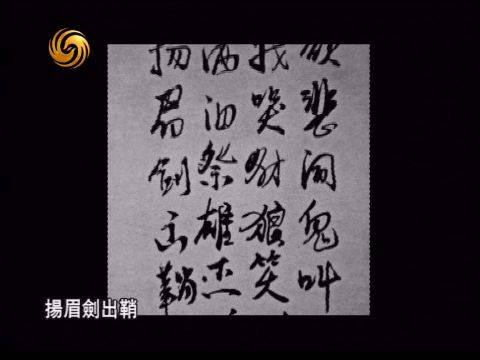 欲悲闻鬼叫
我哭豺狼笑
洒泪祭雄杰
扬眉剑出鞘
揚眉劍出鞘